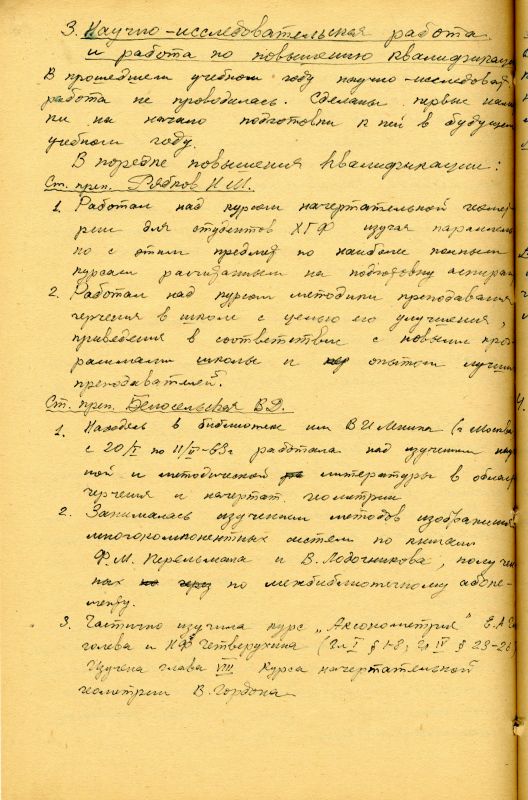 3. Научно-исследовательская работа
и работа по повышению квалификац
В прошедшем учебном году научно-исследоват
работа не проводилась. Сделаны первые намет
ки на начало подготовки к ней в будущем
учебном году.
В порядке повышения квалификации:
Ст. преп. Рябков Н.Ш.
1. Работал над курсом начертательной геомет
рии для студентов ХГФ изучая параллель
но с этим предмет по наиболее полным
курсам расчитанным на подготовку аспиран
2. Работал над курсом методики преподавания
черчения в школе с целью его улучшения,
приведения в соответствие с новыми прог
раммами школы и опытом лучших
преподавателей.
Ст. преп. Белосельская В.Д.
1. Находясь в библиотеке им В.И Ленина (г Москва
с 20/I по 11/II-63г работала над изучением науч
ной и методической литературы в облас
черчения и начертат. геометрии
2. Занималась изучением методов изображения
многокомпонентных систем по книгам
Ф.М. Перельмана и В. Лодочникова, получен
ных по межбиблиотечному абоне-
менту.
3. Частично изучила курс „Аксонометрия" Е.А Гла
голева и НФ Четверухина (Гл I § 1-8, Гл IV § 23-26
Изучена глава VIII Курса начертательной
геометрии В. Гордона
4.